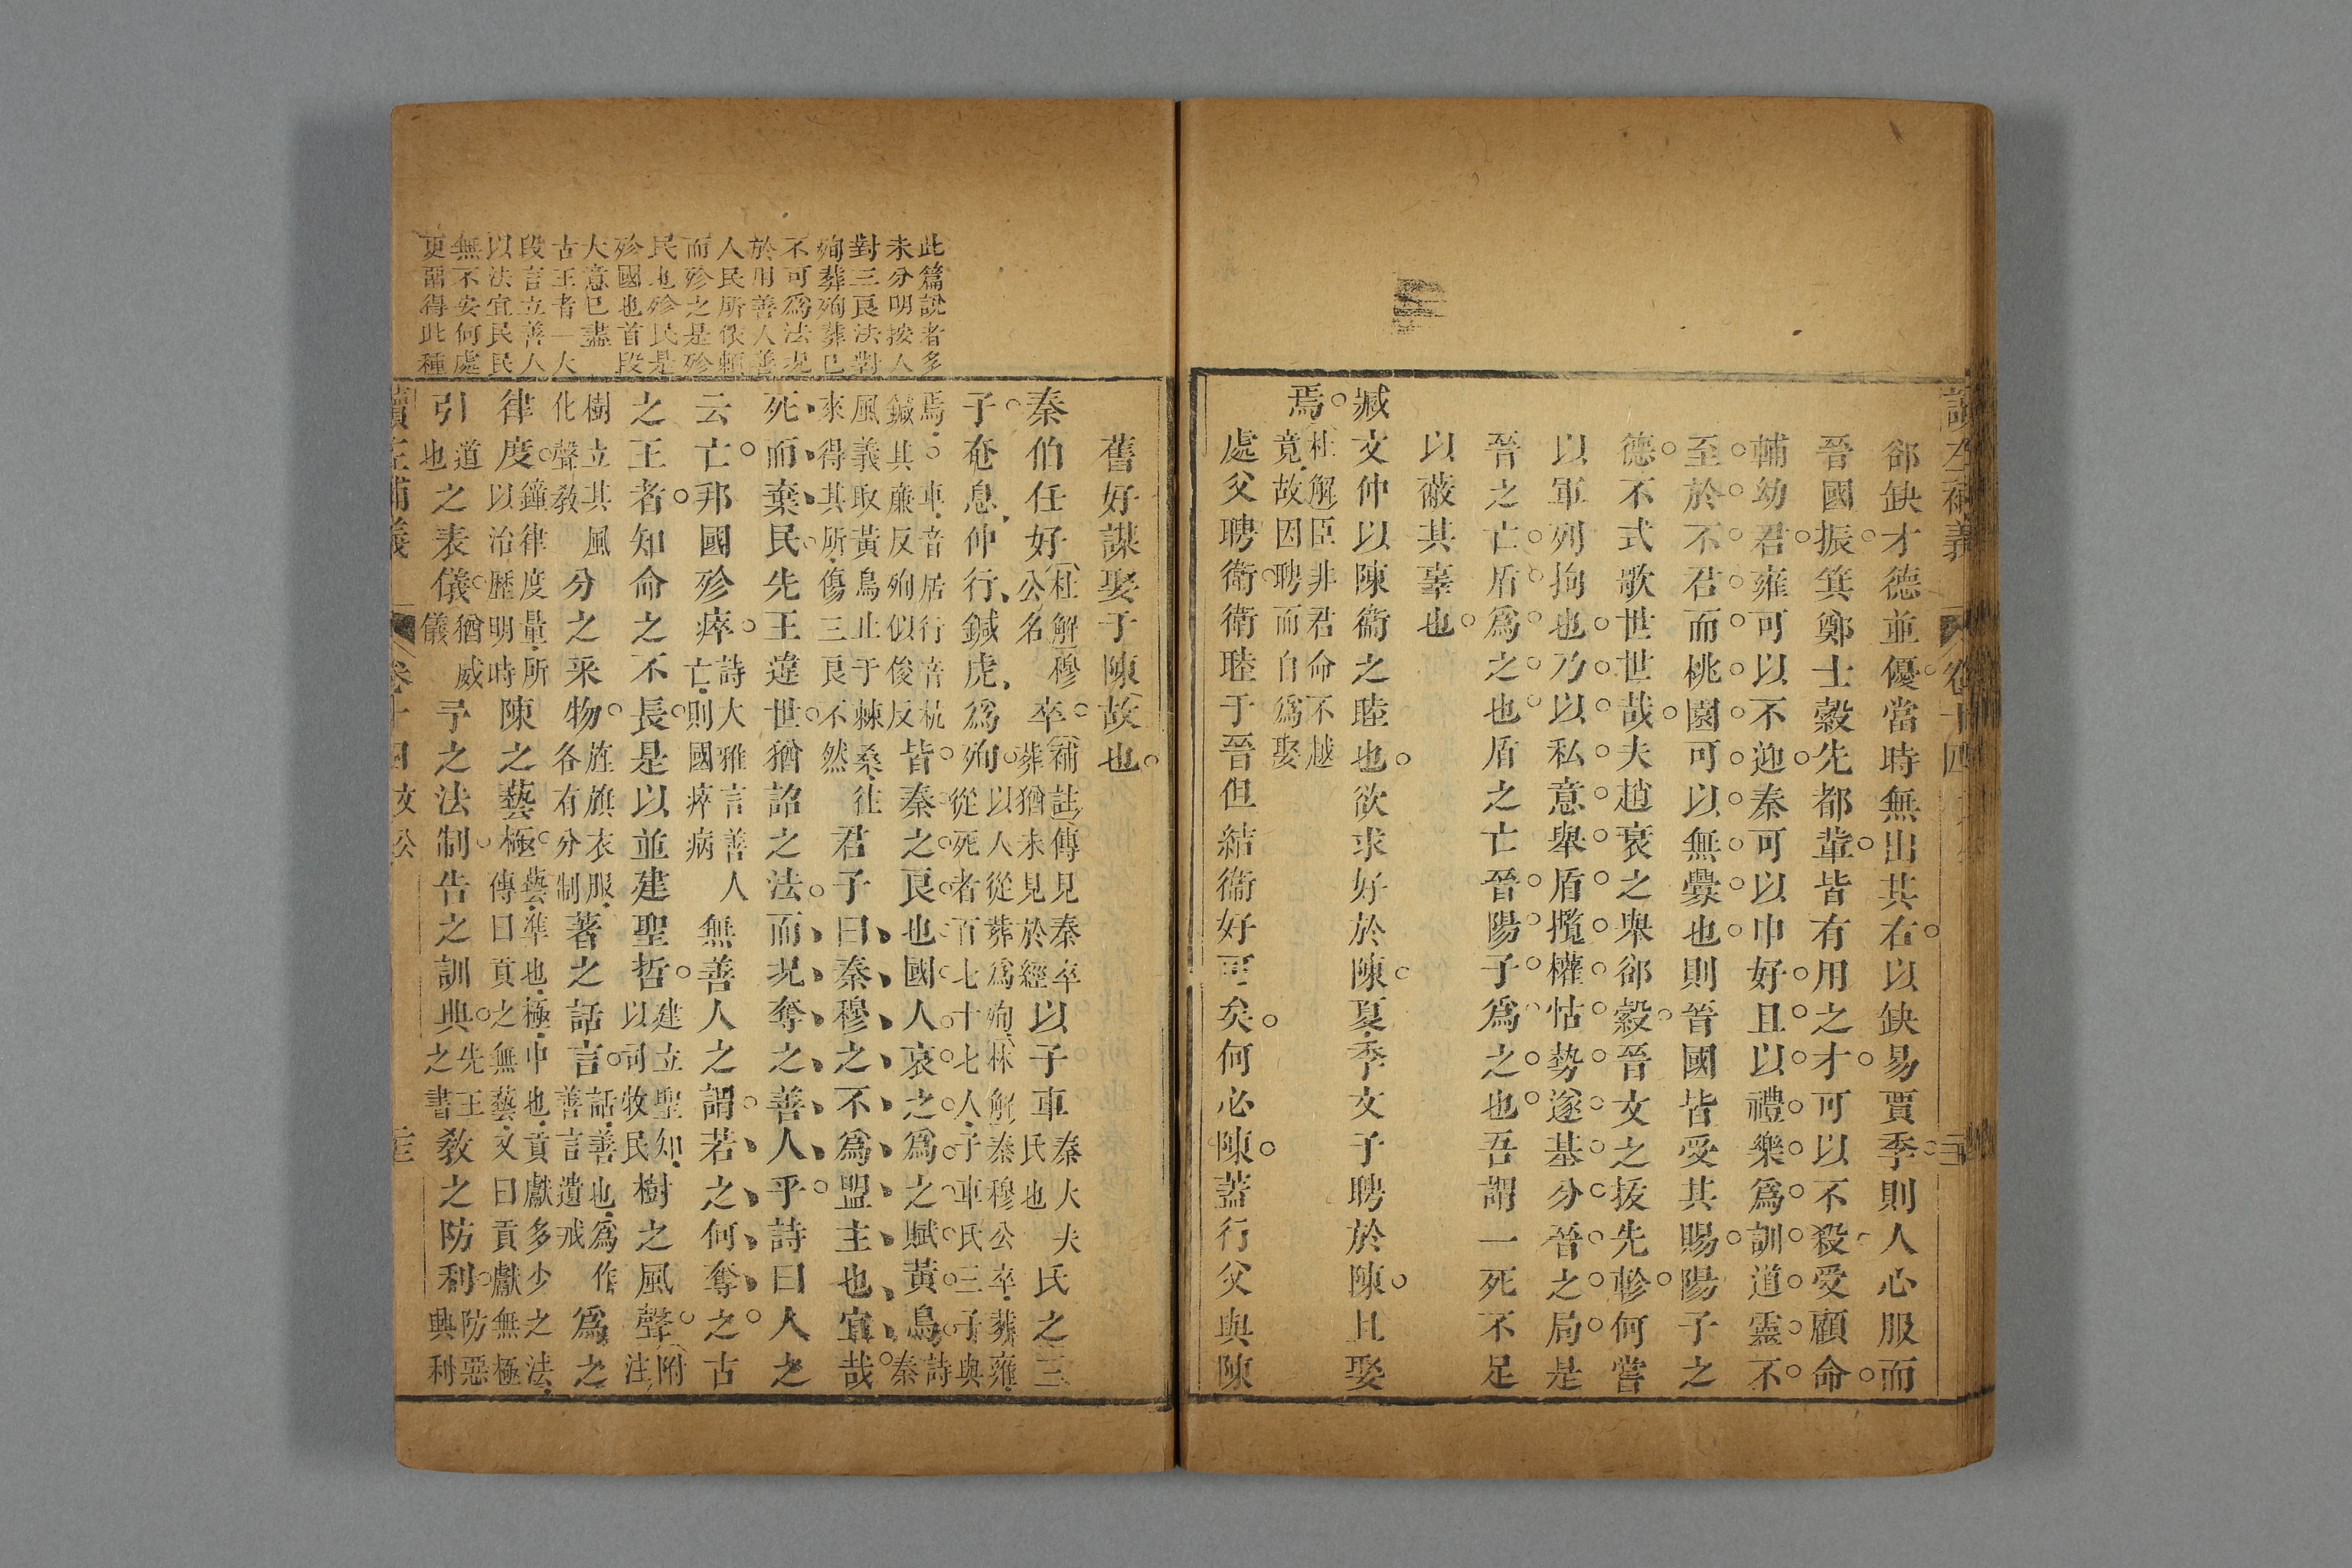 讀左補義 卷十四
郤缺才德並優當時無出其右以缺易賈季則人心服而
晉國振箕鄭士縠先都辈皆有用之才可以不殺受顧命
輔幼君雍可以不迎秦可以申好且以禮樂爲訓道靈不
至於不君而桃園可以無釁也則晉國皆受其賜陽子之
德不式歌世世哉夫趙衰之舉郤縠晉文之拔先軫何嘗
以軍列拘也乃以私意舉盾攬權怙勢遂基分晉之局是
晉之亡盾爲之也盾之亡晉陽子爲之也吾謂一死不足
以蔽其辜也
臧文仲以陳衞之睦也欲求好於陳夏季文子聘於陳且娶
焉杜解臣非君命不越
竟故因聘而自爲娶
處父聘衞衞睦于晉但結衞好可矣何必陳蓋行父與陳
舊好謀娶于陳故也
此篇說者多
未分明按人
對三良法對
殉葬殉葬已
不可爲法况
於用善人善
人民所依賴
而殄之是殄
民也殄民是
殄國也首段
大意已盡
古王者一大
段言立善人
以法宜民民
無不安何處
更留得此種
秦伯任好杜解穆
公名卒補註傳見秦卒
葬猶未見於經以子車秦大夫
氏也氏之三
子奄息仲行鍼虎爲殉以人從葬爲殉林解秦穆公卒葬雍
從死者百七十七人子車氏三子與
焉車音居行音杭
鍼其廉反殉似俊反皆秦之良也國人哀之爲之賦黃鳥詩
秦
風義取黃鳥止于棘桑往
來得其所傷三良不然君子曰秦穆之不爲盟主也宜哉
死而棄民先王違世猶詒之法而况奪之善人乎詩曰人之
云亡邦國殄瘁詩大雅言善人
亡則國瘁病無善人之謂若之何奪之古
之王者知命之不長是以並建聖哲建立聖知
以司牧民樹之風聲附
注
樹立其風
化聲敎分之采物旌旗衣服
各有分制著之話言話善也爲作
善言遺戒爲之
律度鐘律度量所
以治歷明時陳之藝極藝準也極中也貢獻多少之法
傳曰貢之無藝文曰貢獻無極
引道
也之表儀猶威
儀予之法制告之訓典先王
之書敎之防利防惡
興利
讀左補義 卷十四 文公